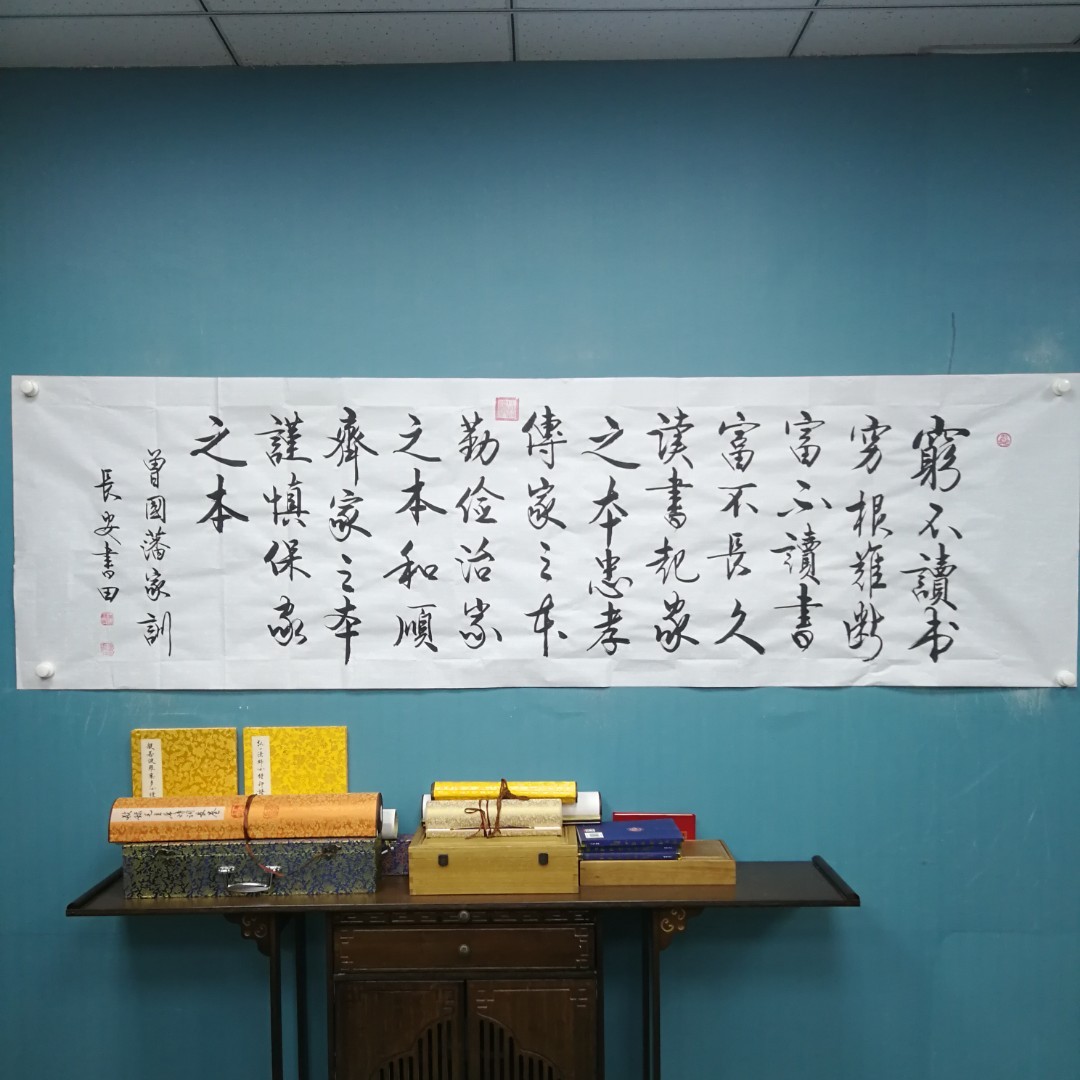 窮不讀书
穷根難断
富不讀書
富不長久
读書起家
之本忠孝
傳家之本
勤俭治家
之本和順
齊家之本
謹慎保家
之本
曾國藩家訓
長安書田